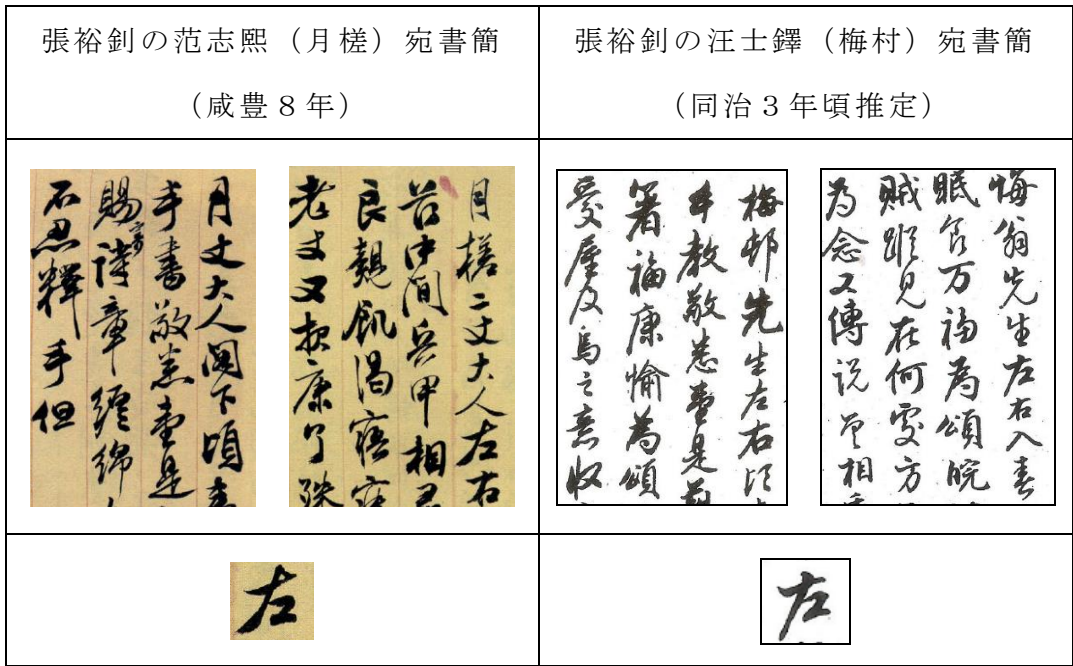 張裕釗の范志熙（月槎）宛書簡
（咸豊８年）
張裕釗の汪士鐸（梅村）宛書簡
（同治３年頃推定）
月丈大人閣下頃奉
手書敬悉壹是
賜寄詩章纏綿
不忍釋手但
月槎二丈大人左右
中間兵甲相尋
良覿飢渴寤寐
老丈又抱康了殊
梅邨先生左右頃
手教敬悉壹是
箸福康愉為頌
愛屋及烏之意收
悔翁先生左右入春
眠食万福為頌皖
賊蹤見在何處方
為念又傳説曾相
左
左